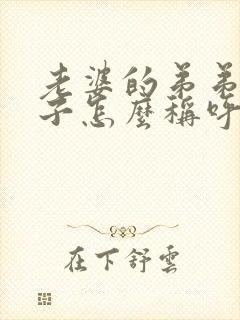 老婆的弟弟
子怎麼稱呼
在下舒雲